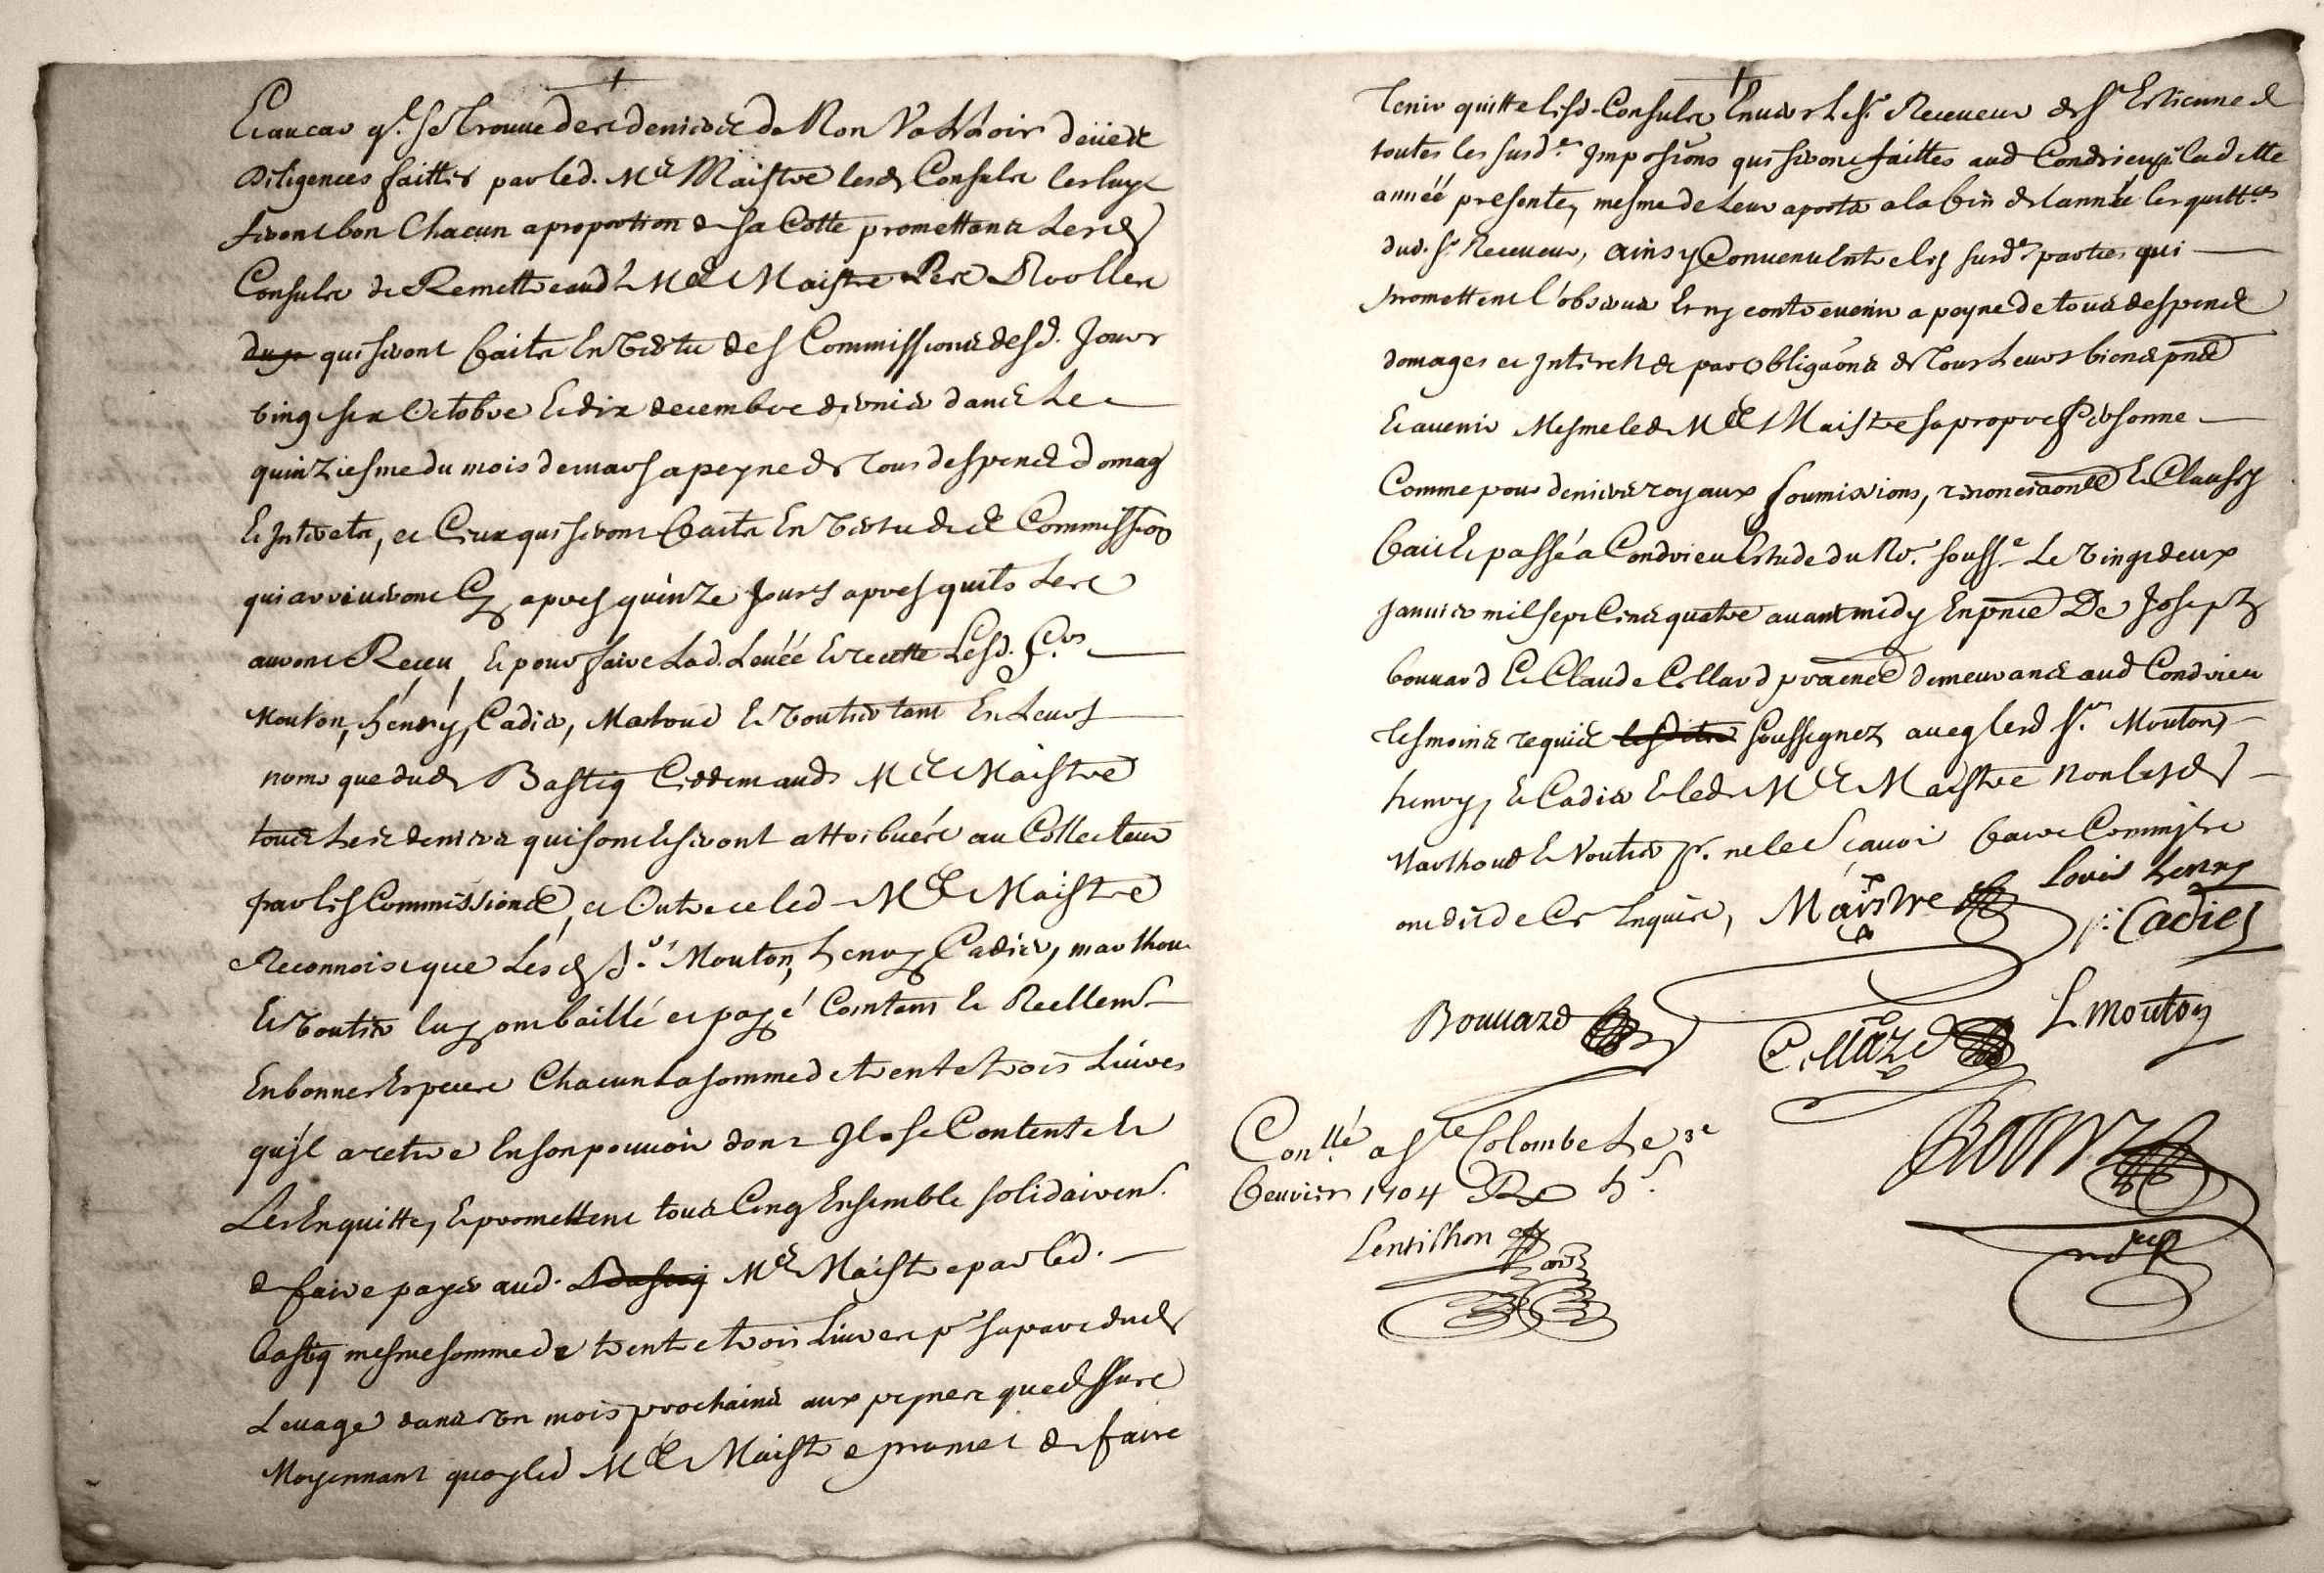 Et au cas q.l se trouve des deniers de Non Valloir deües
Diligences faittes par led. Me Maistre lesd Consuls les luy
feront bon Chacun a proportion de sa Cotte promettants Lesd
Consuls de Remettre aud Me Maistre Les Roolles
qui seront faits En Vertu des Commissions desd. Jours
vingt six Octobre Et dix decembre dernier dans Le
quinziesme du mois de mars a peyne de Tous despends domag
Et Interets, et Ceux qui seront faits En Vertu de Commission
qui arriveront Cy apres quinze Jours apres quils Les
auront Receu, Et pour faire Lad. Levéé Et recette Lesd. Srs
Mouton, henry, Cadier, Marthoud Et Voutier tant En Leurs
noms que dud Bastiq Cedde mand Me Maistre
tous Les deniers qui sont Et seront attribués au Collecteur
par les Commissions, et Outre ce led Me Maistre
Reconnoist que Lesd Srs Mouton, henry, Cadier, marthou
Et Voutier luy ont baillé et payé Contant Et Reellemt
En bonnes Especes Chacun La somme de trente trois Livres
qu'jl a retire En son pouvoir dont Jl se Contente Et
Les En quitte, Et promettent tous Cinq Ensemble solidairemt.
de faire payer aud. Me Maistre par led.
bastiq mesme somme de trente trois Livres pr sa part dud
Levage dans Un mois prochains aux peynes que dessus
Moyennant quoy led Me Maistre promet de faire
Tenir quitte lesd. Consuls Envers Le Sr. Receveur de St Estienne de
toutes les susd.es Jmposions qui seront faittes aud Condrieu ladette
annéé presente, mesme de Leur aporter a la fin de lannéé les quittces
dud. Sr. Receveur, ainsy Convenu Entre les susdes parties qui
promettent l'observer Et ny contrevenir a peyne de tous despends
domages et Jnterests par Obliga͠ons de Tous Leurs biens p͠nts
Et avenir Mesme led Me Maistre sa propre Personne
Comme pour deniers royaux soumissions, renoncia͠ons Et Clauses
fait Et passé a Condrieu Estude du No.re souss.é Le vingt deux
Janvier mil sept Cens quatre avant midy En p͠nce De Joseph
bouvard Et Claude Collard pra͠ciens demeurants aud Condrieu
tesmoins requis soussignez avec lesd Srs. Mouton,
henry, Et Cadier Et led Me Maistre non lesd
Marthoud Et Voutier pr. ne le Sçavoir faire Comm͠e
ont dit de Ce Enquis, Maistre Louis henry
p: Cadier
Bouvard Collard L mouton
Conllé a Ste Colombe Le 3e
fevrier 1704
Lentilhon